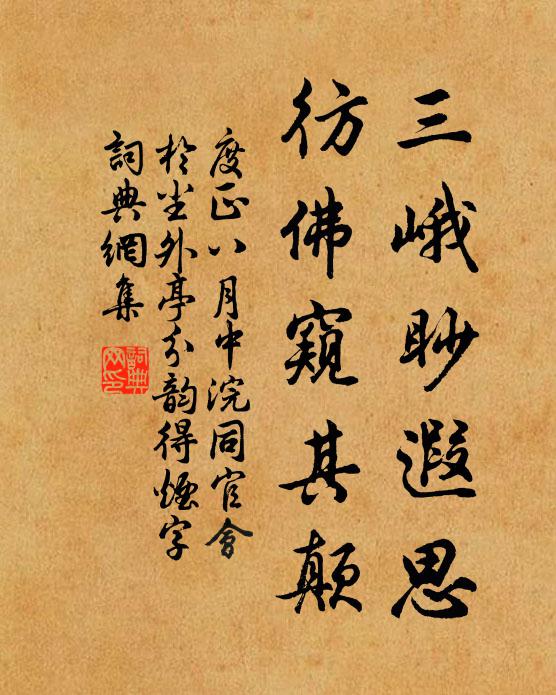 三峨眇遐思
彷佛窺其顛
度正八月中浣同官會
於坐外亭分韵得煙字
詞典網集
詞典網印